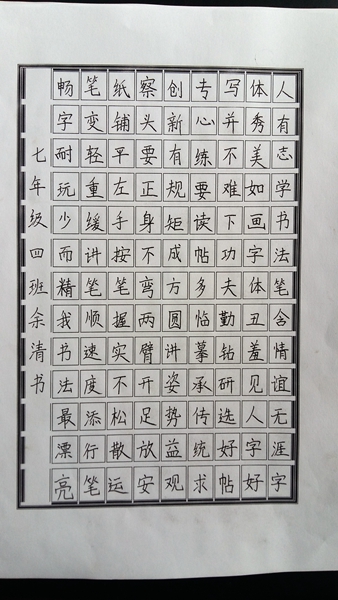 人有志学书法笔舍情谊无涯字
体秀美如画字体丑羞见人字好
写并不难下功夫勤钻研选好帖
专心练要读帖多临摹承传统求
创新有规矩成方圆讲姿势益观
察头要正身不弯两臂开足放安
纸铺早左手按笔握实不松散运
笔变轻重缓讲笔顺速度添行笔
畅字耐玩少而精我书法最漂亮
七年级四班余清书